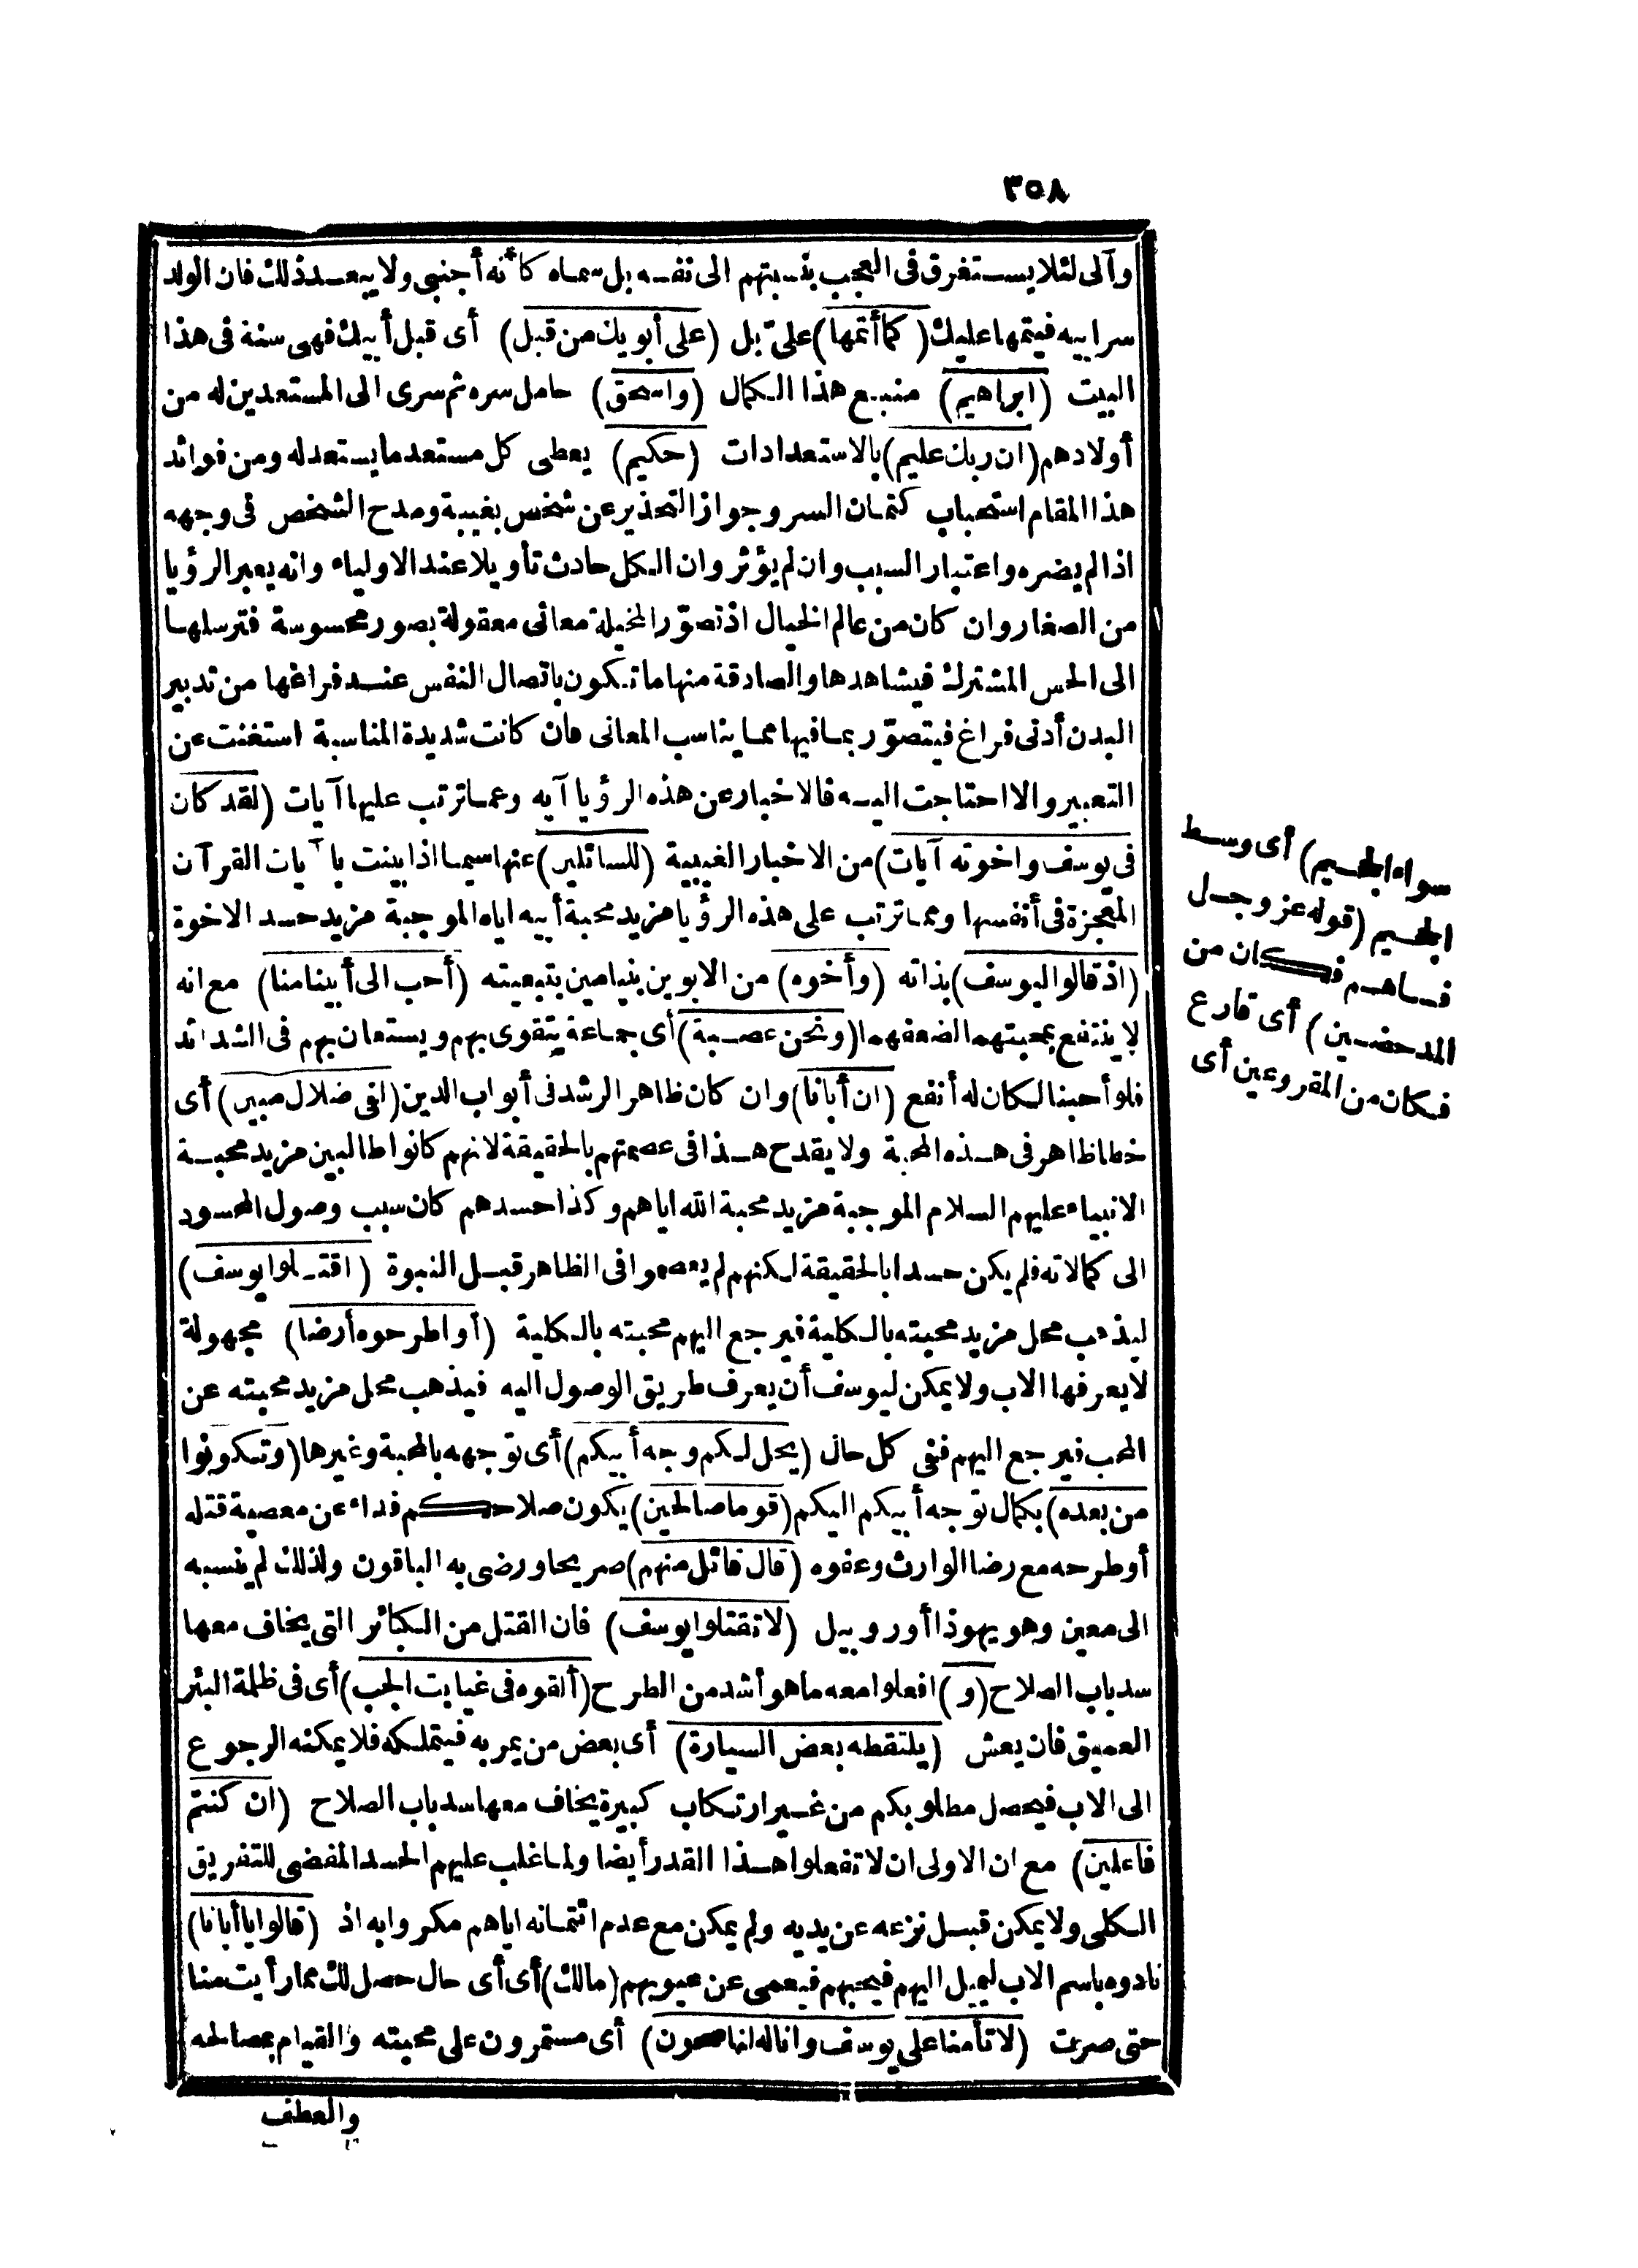 ٣٥٨
وآلى لئلا يستغرق فى العجب بنسبتهم الى نفسه بل سماه كأنه أجنبى ولا يبعد ذلك فان الولد
سر ابيه فيتمها عليك (كما أتمها) علىّ بل (على أبويك من قبل) أى قبل أبيك فهى سنة فى هذا
البيت (ابراهيم) منبع هذا الكمال (واسحق) حامل سره ثم سرى الى المستعدين له من
أولادهم (ان ربك عليم) بالاستعدادات (حكيم) يعطى كل مستعد ما يستعد له ومن فوائد
هذا المقام استحباب كتمان السر وجواز التحذير عن شخص بغيبة ومدح الشخص فى وجهه
اذا لم يضره واعتبار السبب وان لم يؤثر وان الكل حادث تأويلا عند الاولياء وانه يعبر الرؤيا
من الصغار وان كان من عالم الخيال اذ تصوّر المخيلة معانى معقولة بصور محسوسة فترسلها
الى الحس المشترك فيشاهدها والصادقة منها ما تكون باتصال النفس عند فراغها من تدبير
البدن أدنى فراغ فيتصوّر بما فيها مما يناسب المعانى فان كانت شديدة المناسبة استغنت عن
التعبير والا احتاجت اليه فالاخبار عن هذه الرؤيا آيه وعما ترتب عليها آيات (لقد كان
فى يوسف واخوته آيات) من الاخبار الغيبية (للسائلين) عنها سيما اذا بينت بآيات القرآن
المعجزة فى أنفسها ومما ترتب على هذه الرؤيا مزيد محبة أبيه اياه الموجبة مزيد حسد الاخوة
(اذ قالوا ليوسف) بذاته (وأخوه) من الابوين بنيامين بتبعيته (أحب الى أبينا منا) مع انه
لا ينتفع بمحبتهما لضعفهما (ونحن عصبة) أى جماعة يتقوى بهم ويستعان بهم فى الشدائد
فلو أحبنا لكان له أنفع (ان أبانا) وان كان ظاهر الرشد فى أبواب الدين (لفى ضلال مبين) أى
خطا ظاهر فى هذه المحبة ولا يقدح هذا فى عصمتهم بالحقيقة لانهم كانوا طالبين مزيد محبة
الانبياء عليهم السلام الموجبة مزيد محبة الله اياهم وكذا حسدهم كان سبب وصول المحسود
الى كمالاته فلم يكن حسدا بالحقيقة لكنهم لم يعصموا فى الظاهر قبل النبوة (اقتلوا يوسف)
ليذهب محل مزيد محبته بالكلية فيرجع اليهم محبته بالكلية (أو اطرحوه أرضا) مجهولة
لا يعرفها الاب ولا يمكن ليوسف أن يعرف طريق الوصول اليه فيذهب محل مزيد محبته عن
المحب فيرجع اليهم ففى كل حال (يخل لكم وجه أبيكم) أى توجهه بالمحبة وغيرها (وتكونوا
من بعده) بكمال توجه أبيكم اليكم (قوما صالحين) يكون صلاحكم فداء عن معصية قتله
أو طرحه مع رضا الوارث وعفوه (قال قائل منهم) صريحا ورضى به الباقون ولذلك لم ينسبه
الى معين وهو يهوذا أو روبيل (لا تقتلوا يوسف) فان القتل من الكبائر التى يخاف معها
سد باب الصلاح (و) افعلوا معه ما هو أشد من الطرح (ألقوه فى غيابت الجب) أى فى ظلمة البئر
العميق فان يعش (يلتقطه بعض السيارة) أى بعض من يمر به فيتملكه فلا يمكنه الرجوع
الى الاب فيحصل مطلوبكم من غير ارتكاب كبيرة يخاف معها سد باب الصلاح (ان كنتم
فاعلين) مع ان الاولى ان لا تفعلوا هذا القدر أيضا ولما غلب عليهم الحسد المفضى للتفريق
الكلى ولا يمكن قبل نزعه عن يديه ولم يمكن مع عدم ائتمانه اياهم مكروا به اذ (قالوا يا أبانا)
نادوه باسم الاب ليميل اليهم فيحبهم فيعمى عن عيوبهم (مالك) أى أى حال حصل لك مما رأيت منا
حتى صرت (لا تأمنا على يوسف وانا له لناصحون) أى مستمرون على محبته والقيام بمصالحه
والعطف
سواء الجحيم) أى وسط
الجحيم (قوله عز وجل
فساهم فكان من
المدحضين) أى قارع
فكان من المقروعين أى